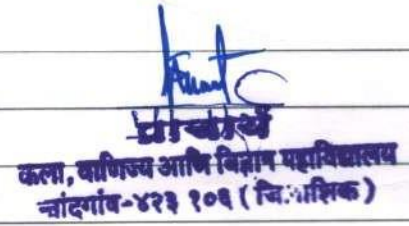 प्राचार्य
कला, वाणिज्य आणि विज्ञान महाविद्यालय
नांदगांव-४२३ १०६ ( जि. नाशिक )